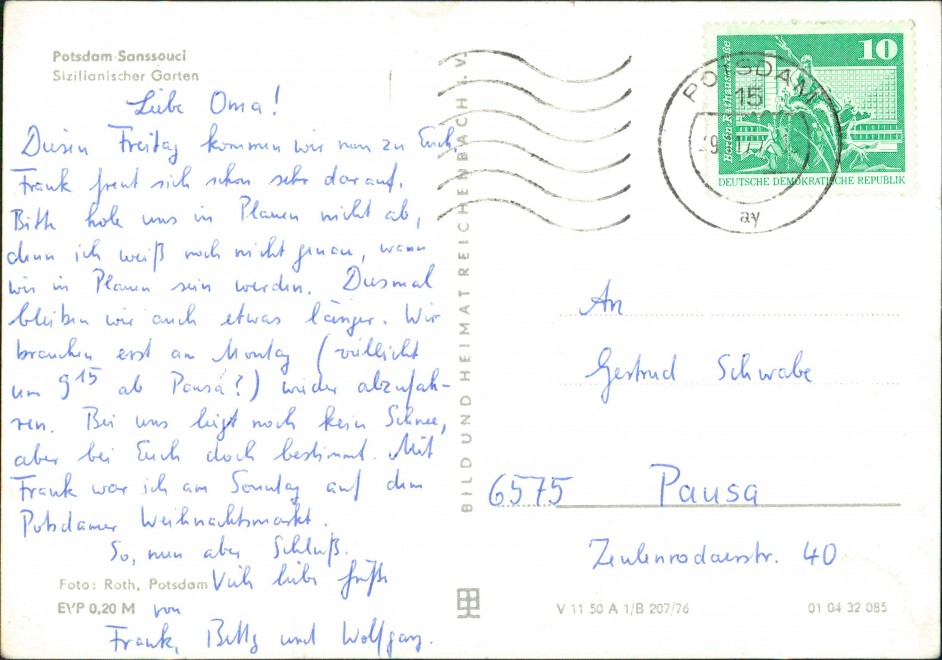 Potsdam-Sanssouci
Sizilianischer Garten
Liebe Oma!
Diesen Freitag kommen wir nun zu Euch.
Frank freut sich schon sehr darauf.
Bitte hole uns in Plauen nicht ab,
denn ich weiß noch nicht genau, wann
wir in Plauen sein werden. Diesmal
bleiben wir auch etwas länger. Wir
brauchen erst am Montag (vielleicht
um 9 15 ab Pausa?) wieder abzufah-
ren. Bei uns liegt noch kein Schnee,
aber bei Euch doch bestimmt. Mit
Frank war ich am Sonntag auf dem
Potsdamer Weihnachtsmarkt.
So, nun aber Schluß.
Viele liebe Grüße
von
Frank, and Wolfgang.
Foto: Roth, Potsdam
EVP 0,20 M
BILD UND HEIMAT REICHENBACH I. V.
10
Berlin-Rathausstraße
DEUTSCHE DEMOKRATISCHE REPUBLIK
POTSDAM
15
ay
An
Gertrud Schwabe
6575 Pausa
Zeulenrodaerstr. 40
V 11 50 A 1/B 207/76
01 04 32 085